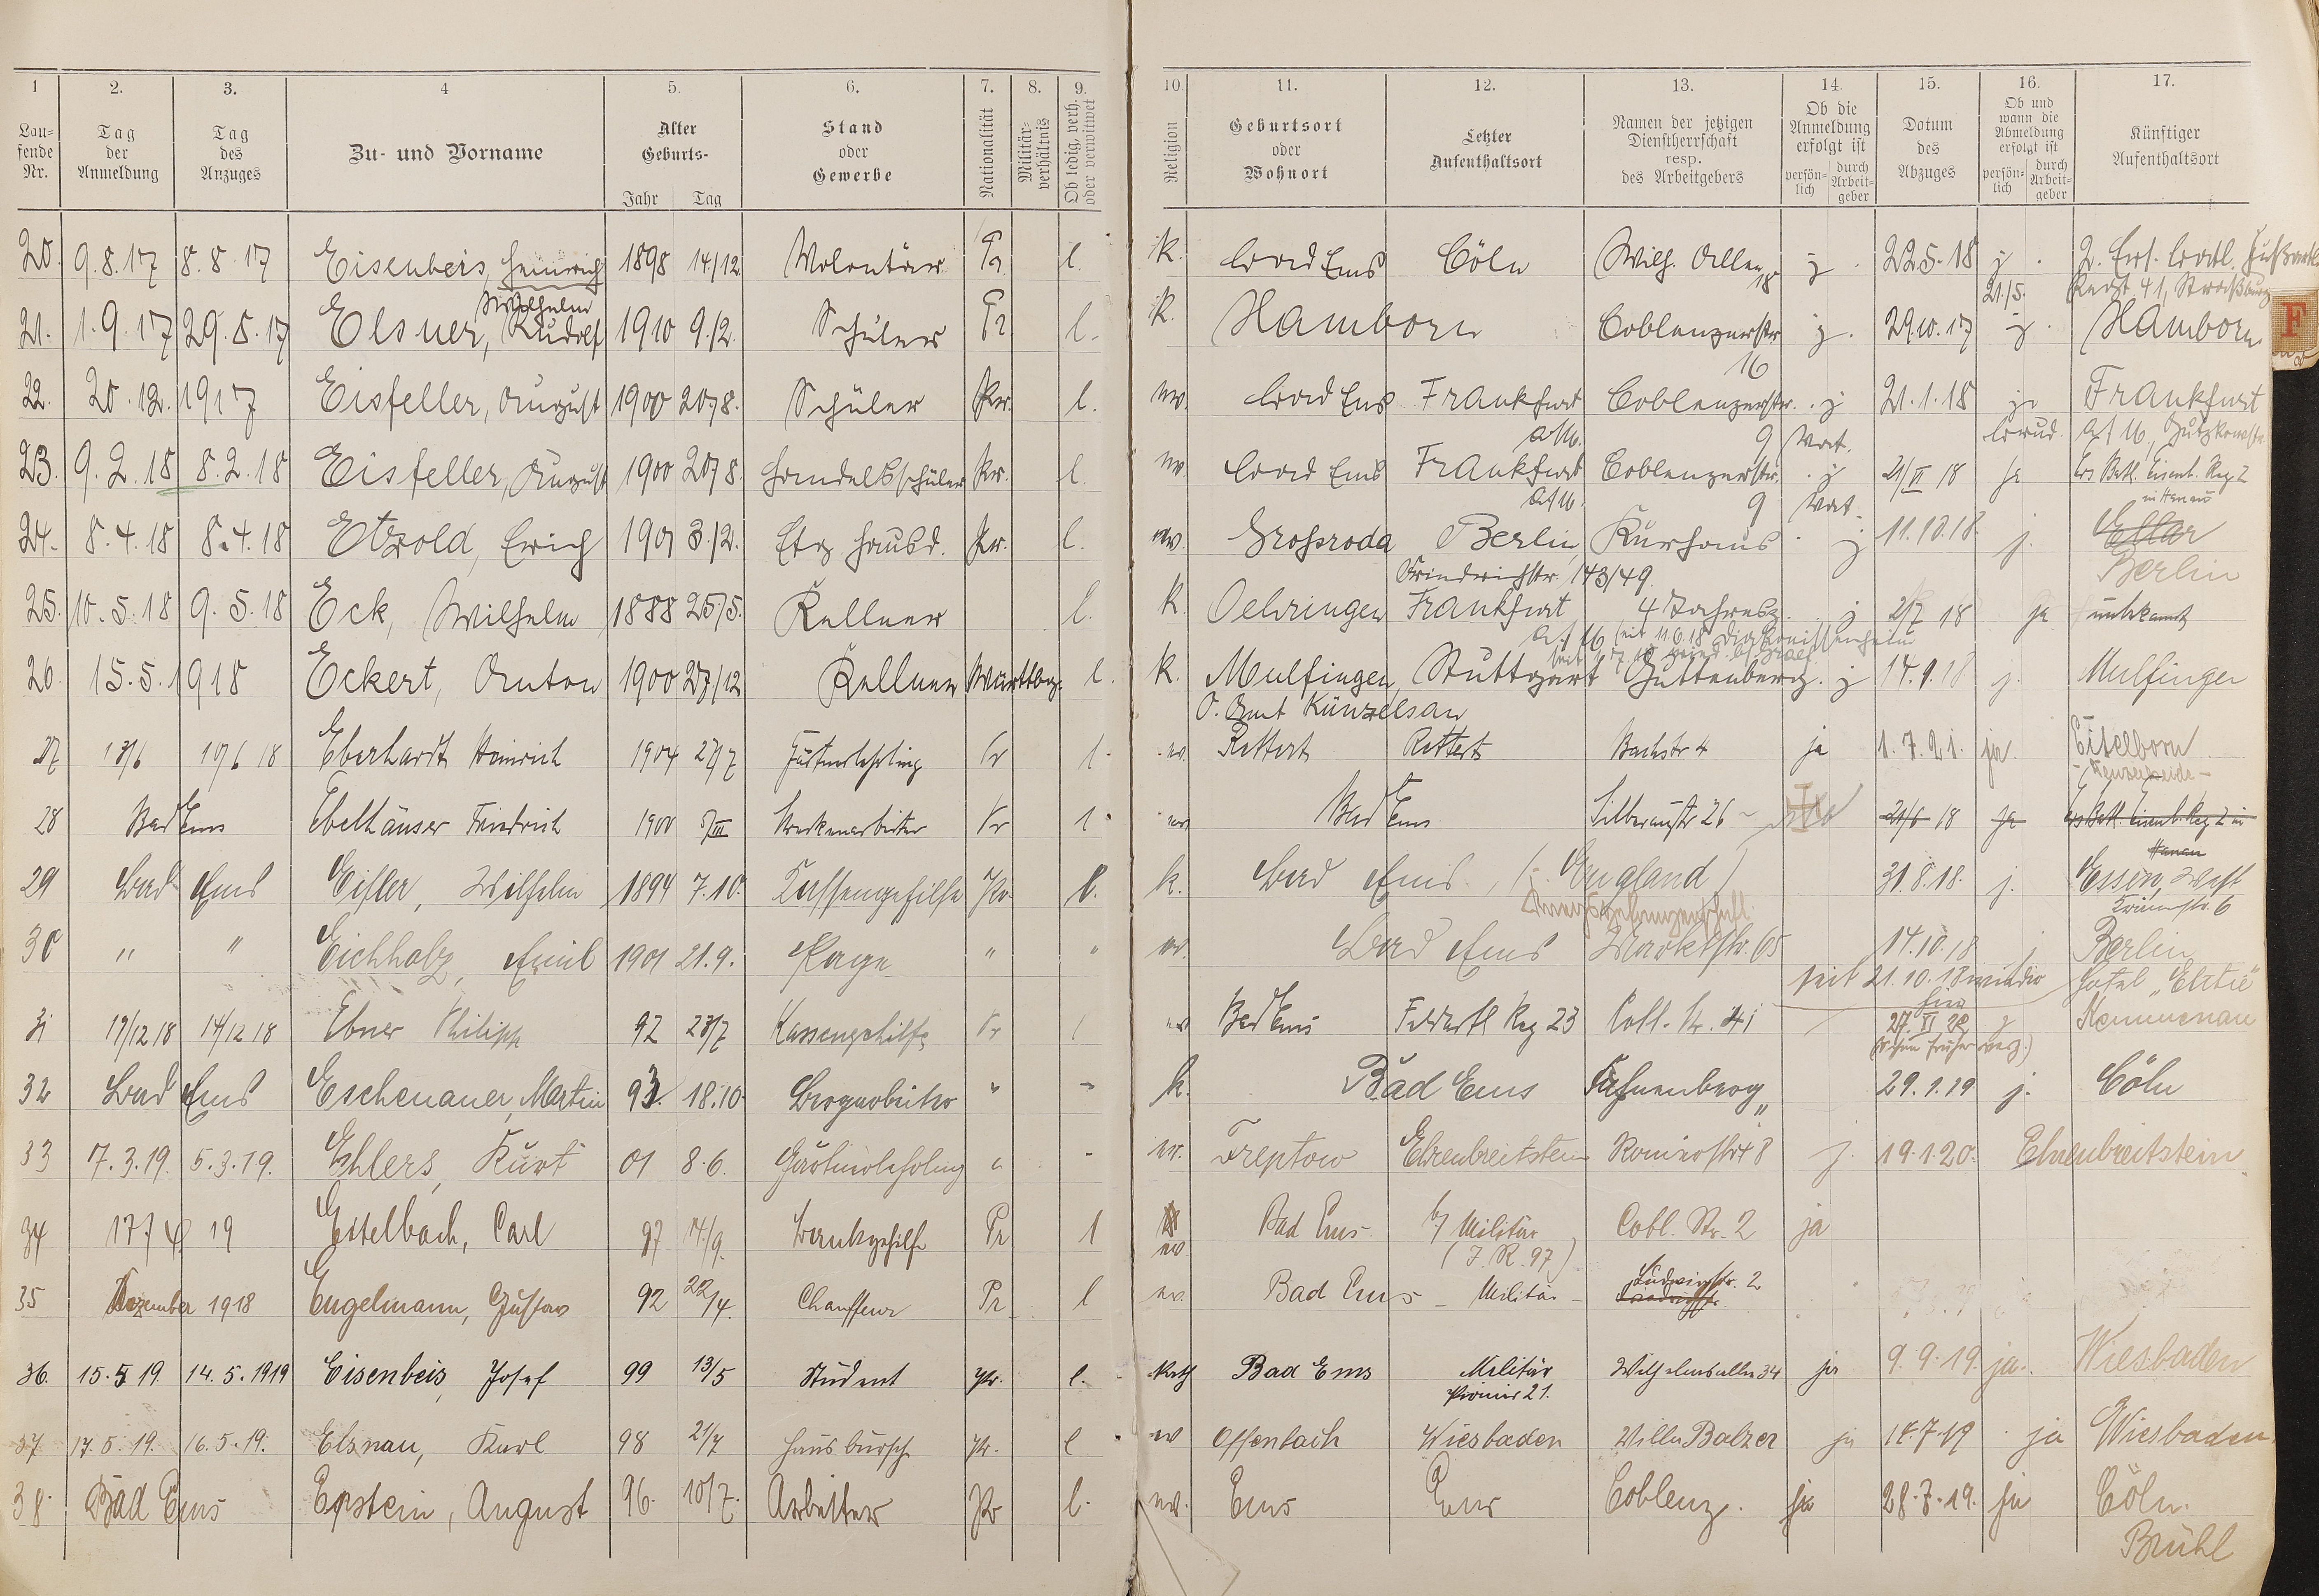 1 2. 3. 4 5. 6. 7. 8. 9. 10. 11. 12. 13. 14. 15. 16. 17.
Laufende Nr. Tag der Anmeldung Tag des Anzuges Zu- und Vorname Alter Geburts- Jahr Tag Stand oder Gewerbe Nationalität Militärverhältnis Ob ledig, verh. oder verwitwet Religion Geburtsort oder Wohnort Letzter Aufenthaltsort Namen der jetzigen Dienstherrschaft resp. des Arbeitgebers Ob die Anmeldung erfolgt ist persönlich durch Arbeitgeber Datum des Abzuges Ob und wann die Abmeldung erfolgt ist persönlich durch Arbeitgeber Künftiger Aufenthaltsort
20. 9.8.17 8.8.17 Eisenbeis, Heinrich 1898 14/12. Volontär Pr. l. k. Bad Ems Cöln Wilh. Allee 18 j. 22.5.18 j. 2. Ers. Batl. Fußartl.
21/5. Regt 41, Straßburg
Wilhelm
21. 1.9.17 29.8.17 Elsner, Rudolf 1910 9./2. Schüler Pr l. k. Hamborn Coblenzerstr. 16 j. 29.10.17 j. Hamborn
22. 20.12.1917 Eisfeller, August 1900 20/8. Schüler Pr. l. ev. Bad Ems Frankfurt a/M. Coblenzerstr. 9 j Vat. 21.1.18 Frankfurt
a/M., Gutzkowstr.
23. 9.2.18 8.2.18 Eisfeller, August 1900 20/8. Handelsschüler Pr. l. ev. Bad Ems Frankfurt a/M. Coblenzerstr. 9 j Vat. 21/VI 18 ja Ers Batl. Eisenb. Reg 2
in Hanau
24. 8.4.18 8.4.18 Etzold, Erich 1901 3./2. Hausd. Pr. l. ev. Grossroda Berlin, Kurhaus j 11.10.18. j.
Friedrichstr. 143/49. Berlin
25. 10.5.18 9.5.18 Eck, Wilhelm 1888 25/5. Kellner l. k. Oehringen Frankfurt a/M 4 Jahresz. j 2/7 18 ja unbekannt
seit 11.6.18 Diakonissenheim
26. 15.5.1918 Eckert, Anton 1900 27/12 Kellner Württbg. l. k. Mulfingen, Stuttgart Guttenberg. j 14.9.18 j. Mulfingen
O. Amt Künzelsau
27 18/6 17/6 18 Eberhardt Heinrich 1904 27/7 Gärtnerlehrling Pr l. ev. Rettert Rettert Bachstr 4 ja 1.7.21. ja. Eitelborn
28 Bad Ems Ebelhäuser Friedrich 1900 5/III Streckenarbeiter Pr l. ev Bad Ems Silberaustr 26 21/6 18 ja Ers Batl. Eisenb. Reg 2 in
Hanau
29 Bad Ems Eisler, Wilhelm 1894 7.10. Kassengehilfe Pr. l. k. Bad Ems. (England) 31.8.18. j. Essen, West
Kriegsgefangenschaft
30 " " Eichholz, Emil 1901 21.9. Page " " ev. Bad Ems Marktstr. 65 14.10.18 j Berlin
seit 21.10.18 wieder hier Hotel
31 17/12 18 14/12 18 Ebner Philipp 92 27/7 Kassengehilfe Pr l ev Bad Ems Feldartl Reg 23 Cobl. Str. 41 27.XI 22 j Kemmenau
(schon früher verz.)
32 Bad Ems Eschenauer, Martin 93. 18.10. Bergarbeiter " " k. Bad Ems Fahnenberg 29.1.19 j. Cöln
33 7.3.19. 5.3.19. Ehlers, Kurt 01 8.6. Gärtnerlehrling " " ev. Treptow Ehrenbreitstein Römerstr 48 j. 19.1.20. Ehrenbreitstein
34 17/4 19 Eitelbach, Carl 97 14./9. Bankgehilfe Pr l ev. Bad Ems b/ Militär Cobl. Str. 2 ja
(J.R.97)
35 Dezember 1918 Engelmann, Gustav 92 22/4. Chauffeur Pr. l ev. Bad Ems - Militär - Ludwigstr. 2
36. 15.5 19. 14.5.1919 Eisenbeis, Josef 99 13/5 Student Pr. l. Kath Bad Ems Militär Wilhelmsallee 34 ja 9.9.19. ja. Wiesbaden
Pionier 21.
37 17.5.19. 16.5.19. Elsnau, Karl 98 21/7 Hausbursch Pr. l ev Offenbach Wiesbaden Villa Balzer ja 14.7.19 ja Wiesbaden.
38. Bad Ems Epstein, August 96. 10/7. Arbeiter Pr l. ev. Ems Ems Coblenz. ja 28.7.19. ja Cöln.
Brühl
F